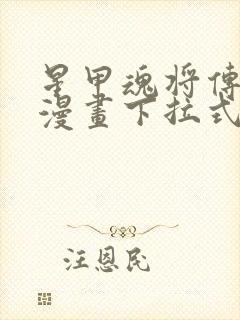 星甲魂将傳
漫畫下拉式
汪恩民